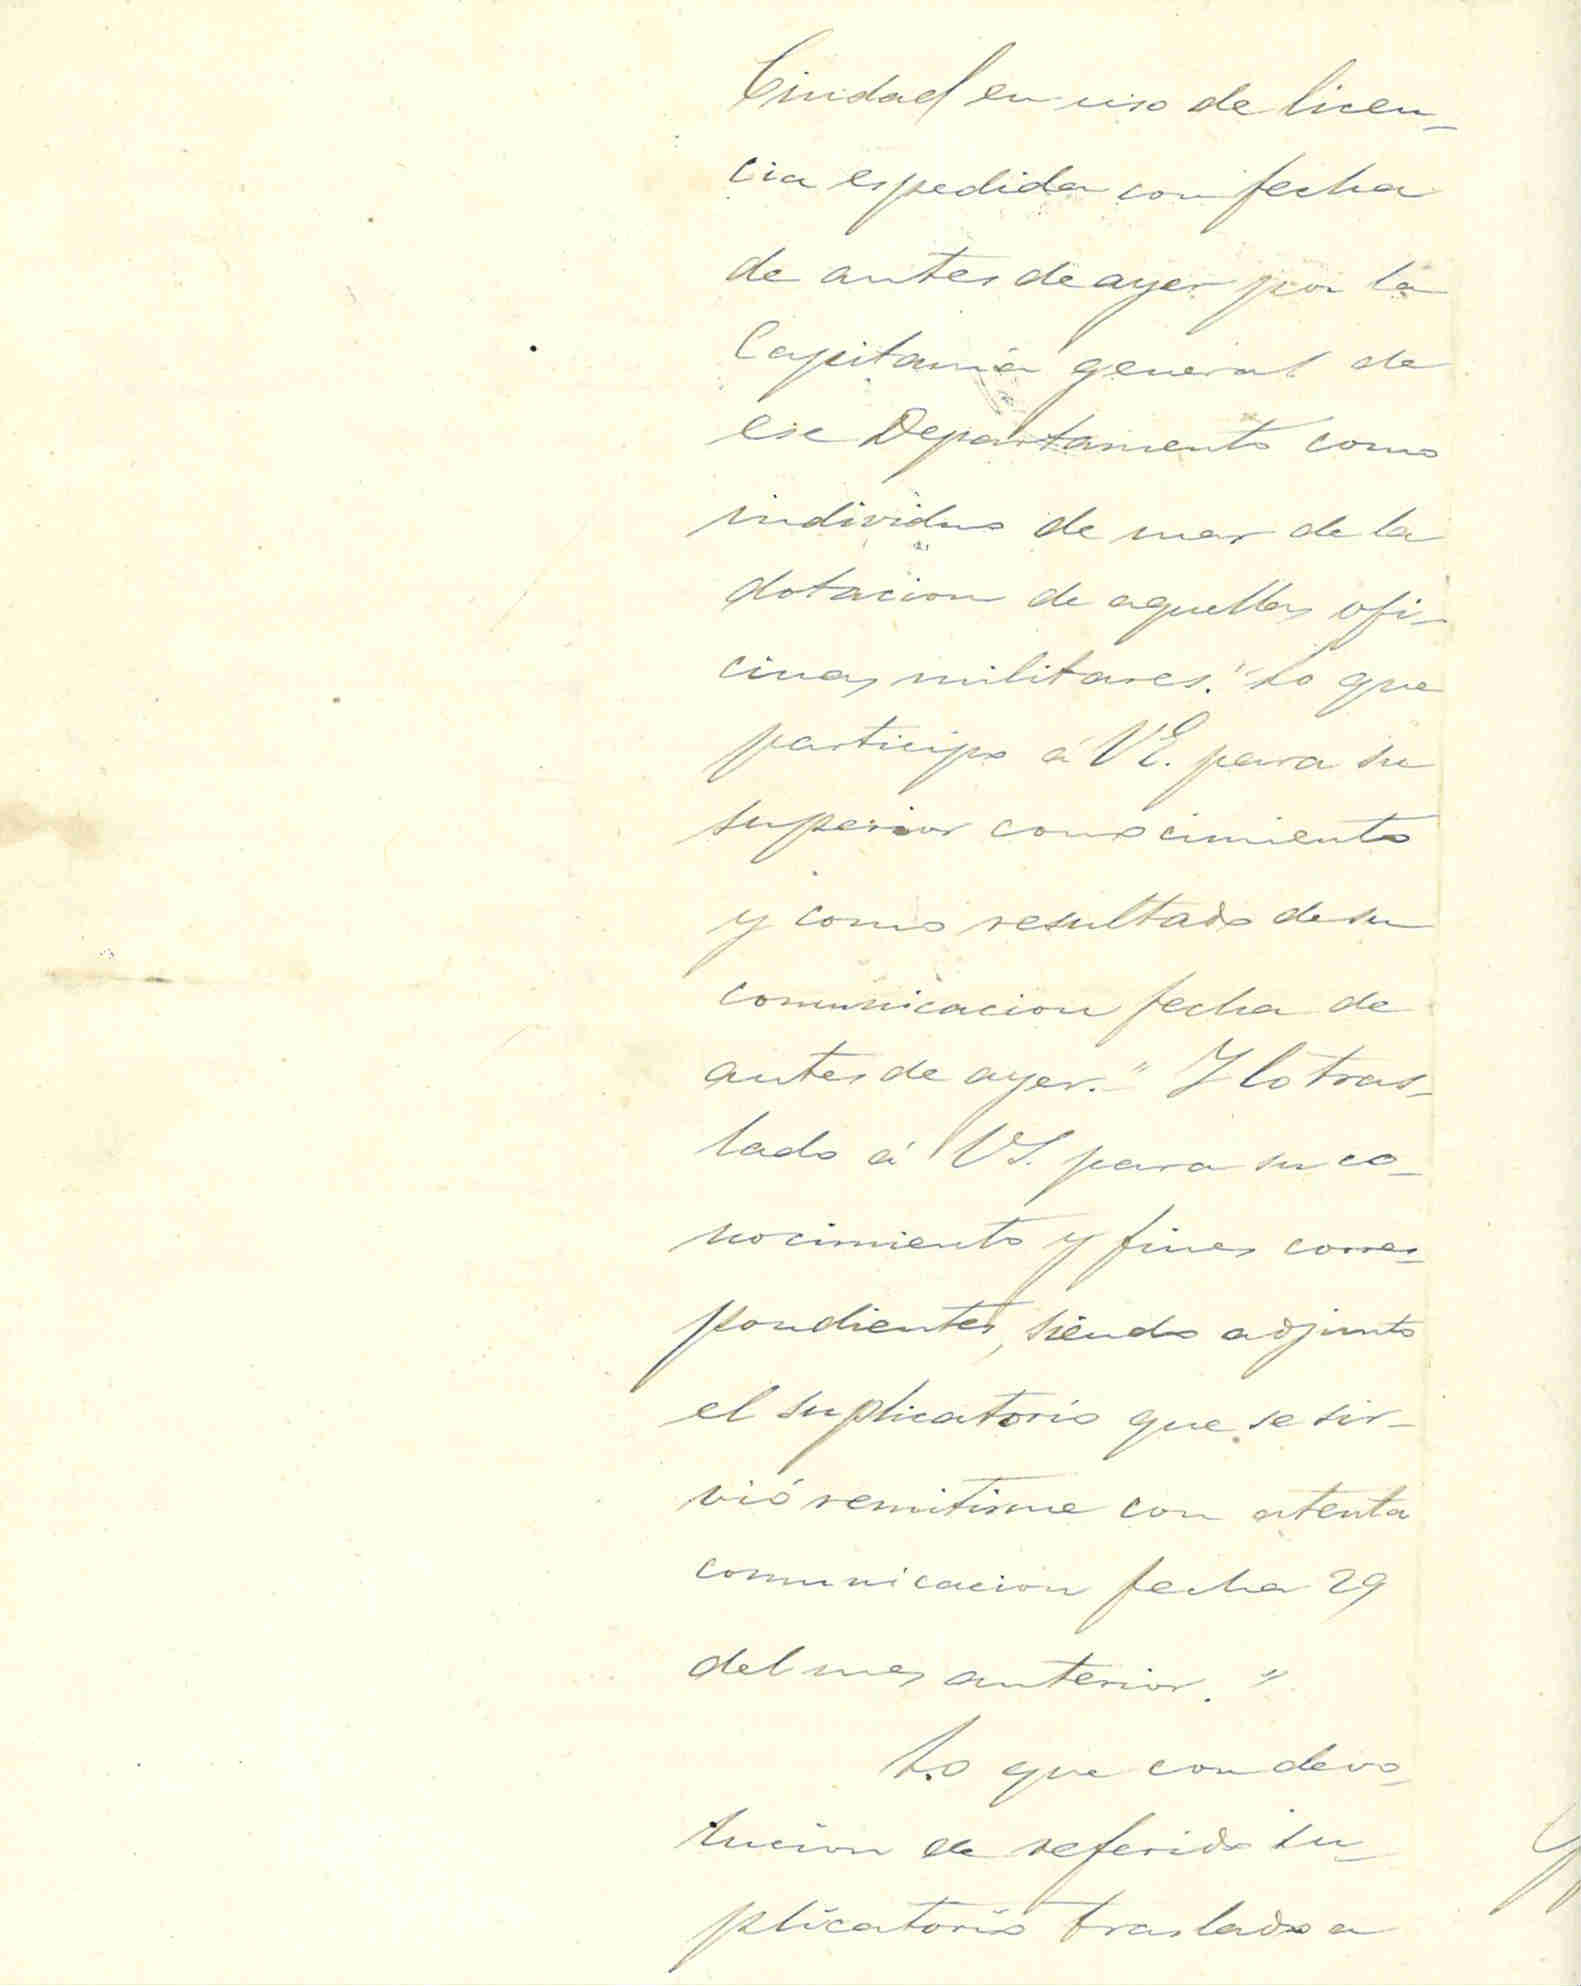 Ciudad en uso de licen-
cia espedida con fecha
de antes de ayer por la
Capitania general de
ese Departamento como
individuo de mar de la
dotacion de aquellas ofi-
cinas militares." Lo que
participo á V.E. para su
superior conocimiento
y como resultado de su
comunicacion fecha de
antes de ayer." Y lo tras-
lado á V.S. para su co-
nocimiento y fines corres-
pondientes, siendo adjunto
el suplicatorio que se sir-
vió remitirme con atenta
comunicacion fecha 29
del mes anterior."
Lo que con devo-
lucion de referido su-
plicatorio traslado a